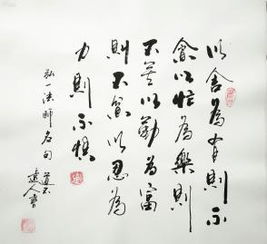 以舍為有則不
貪以忙為樂則
不苦以勤為富
則不貧以忍為
力則不懼
弘一法師名句